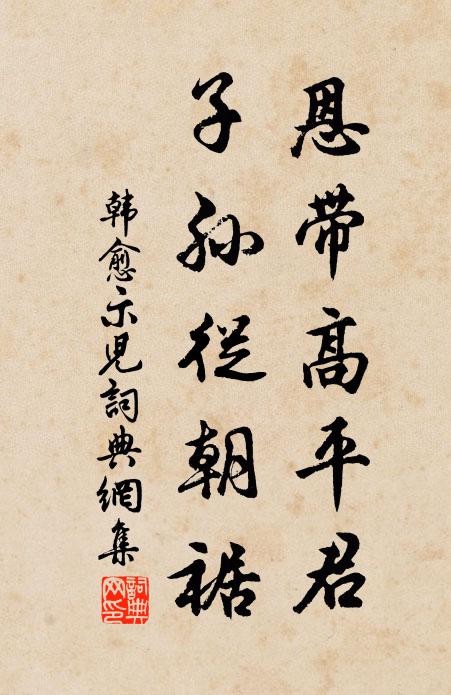 恩带高平君
子孙從朝裾
韩愈示兒詞典網集
詞典
网印